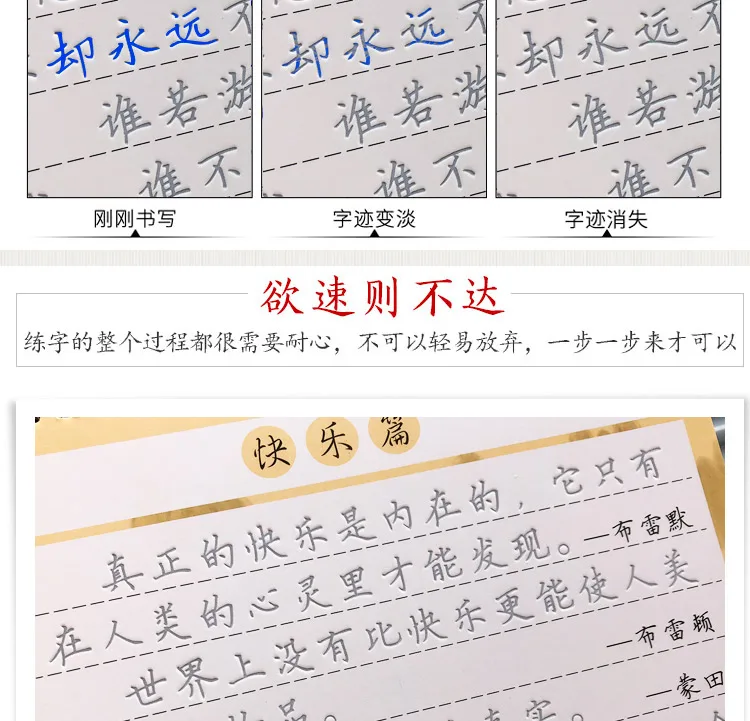 却永远不
却永远
却永远不
谁若游
谁若游
谁若游
谁不
谁不
谁不
刚刚书写
字迹变淡
字迹消失
欲速则不达
练字的整个过程都很需要耐心，不可以轻易放弃，一步一步来才可以
快乐篇
真正的快乐是内在的，它只有
在人类的心灵里才能发现。
—布雷默
世界上没有比快乐更能使人美
—布雷顿
—蒙田
品。
真实。